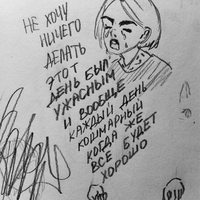 НЕ ХОЧУ
НИЧЕГО
ДЕЛАТЬ
ЭТОТ
ДЕНЬ БЫЛ
УЖАСНЫМ
И ВООБЩЕ
КАЖДЫЙ ДЕНЬ
КОШМАРНЫЙ
КОГДА ЖЕ
ВСЕ БУДЕТ
ХОРОШО